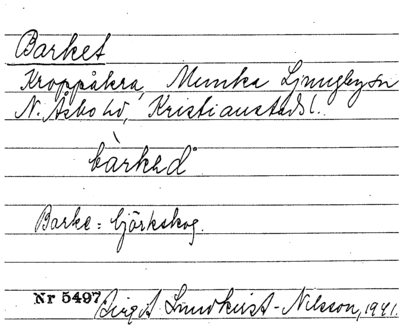 Barket
Kroppåkra, Munka Ljungby sn
N. Åsbo hd, Kristianstads l.
bàrked
Barke = björkskog.
Nr 5497. Birgit Lundkvist-Nilsson, 1941.